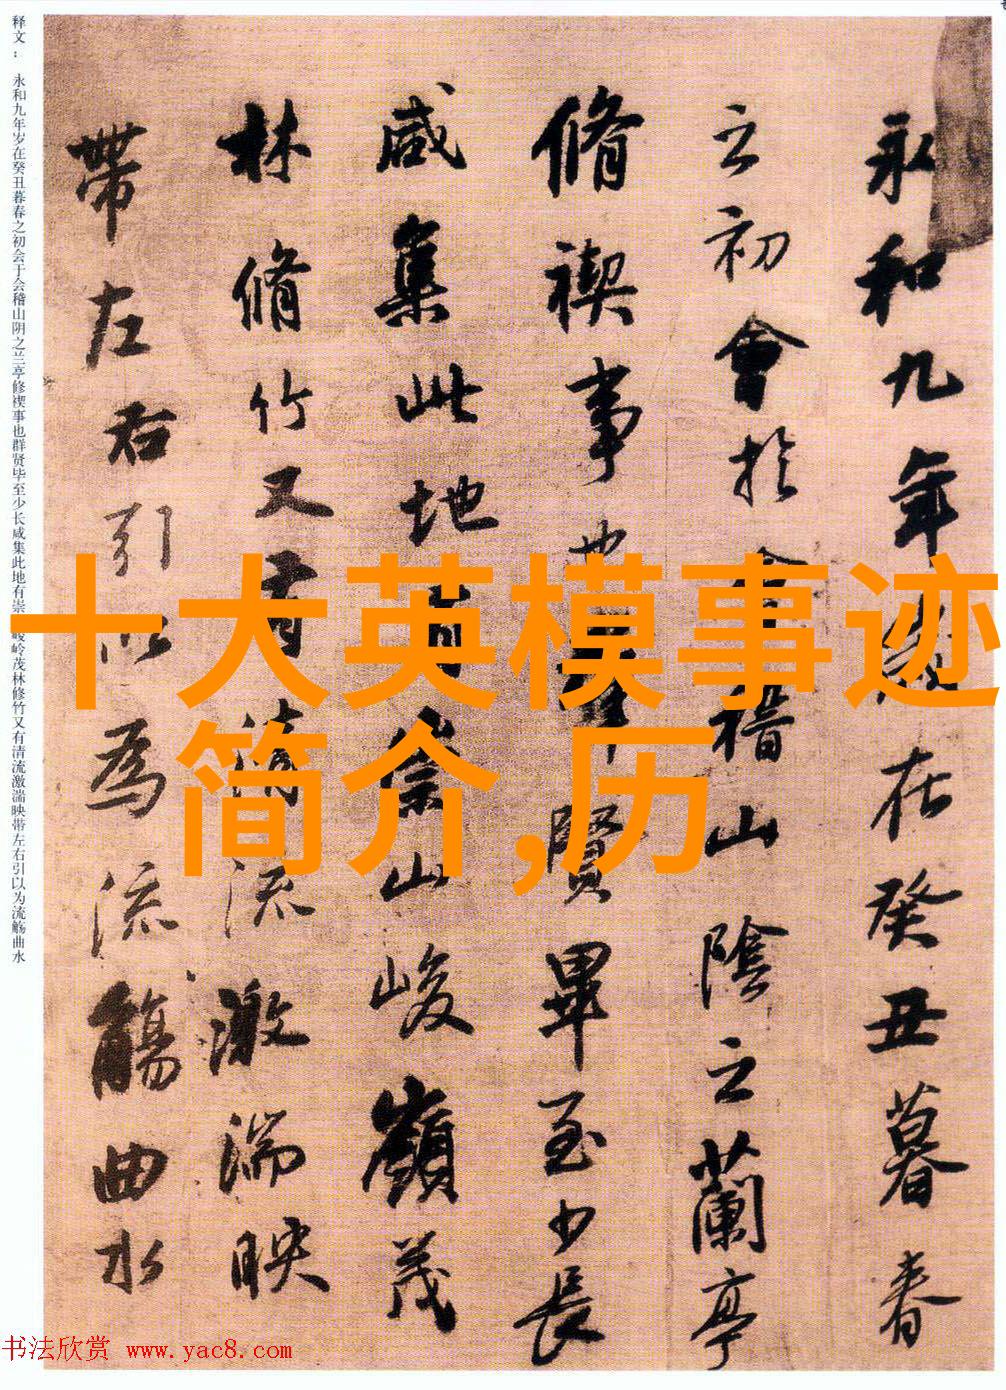 释文： 永和九年岁在癸丑暮春之初会于会稽山阴之兰亭修禊事也群贤毕至少长咸集此地有崇 岭茂林修竹又有清流激湍映带左右引以为流觞曲水
永和九年 在癸丑暮春
之初會於 稽山陰之蘭亭
脩禊事 賢畢至少長
咸集此地 山峻嶺茂
林脩竹又有清流激湍映
帶左右引以為流觴曲水
十大英模事迹
简介,历
书法欣赏 www.yac8.com